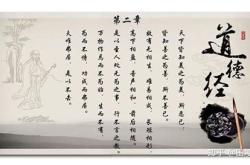 道德经
第二章
天下皆知美之为美，斯恶已；
皆知善之为善，斯不善已。
故有无相生，难易相成，长短相形，
高下相盈，音声相和，前后相随。
是以圣人处无为之事，行不言之教；
万物作焉而不为始，生而不有，
为而不恃，功成而弗居。
夫唯弗居，是以不去。